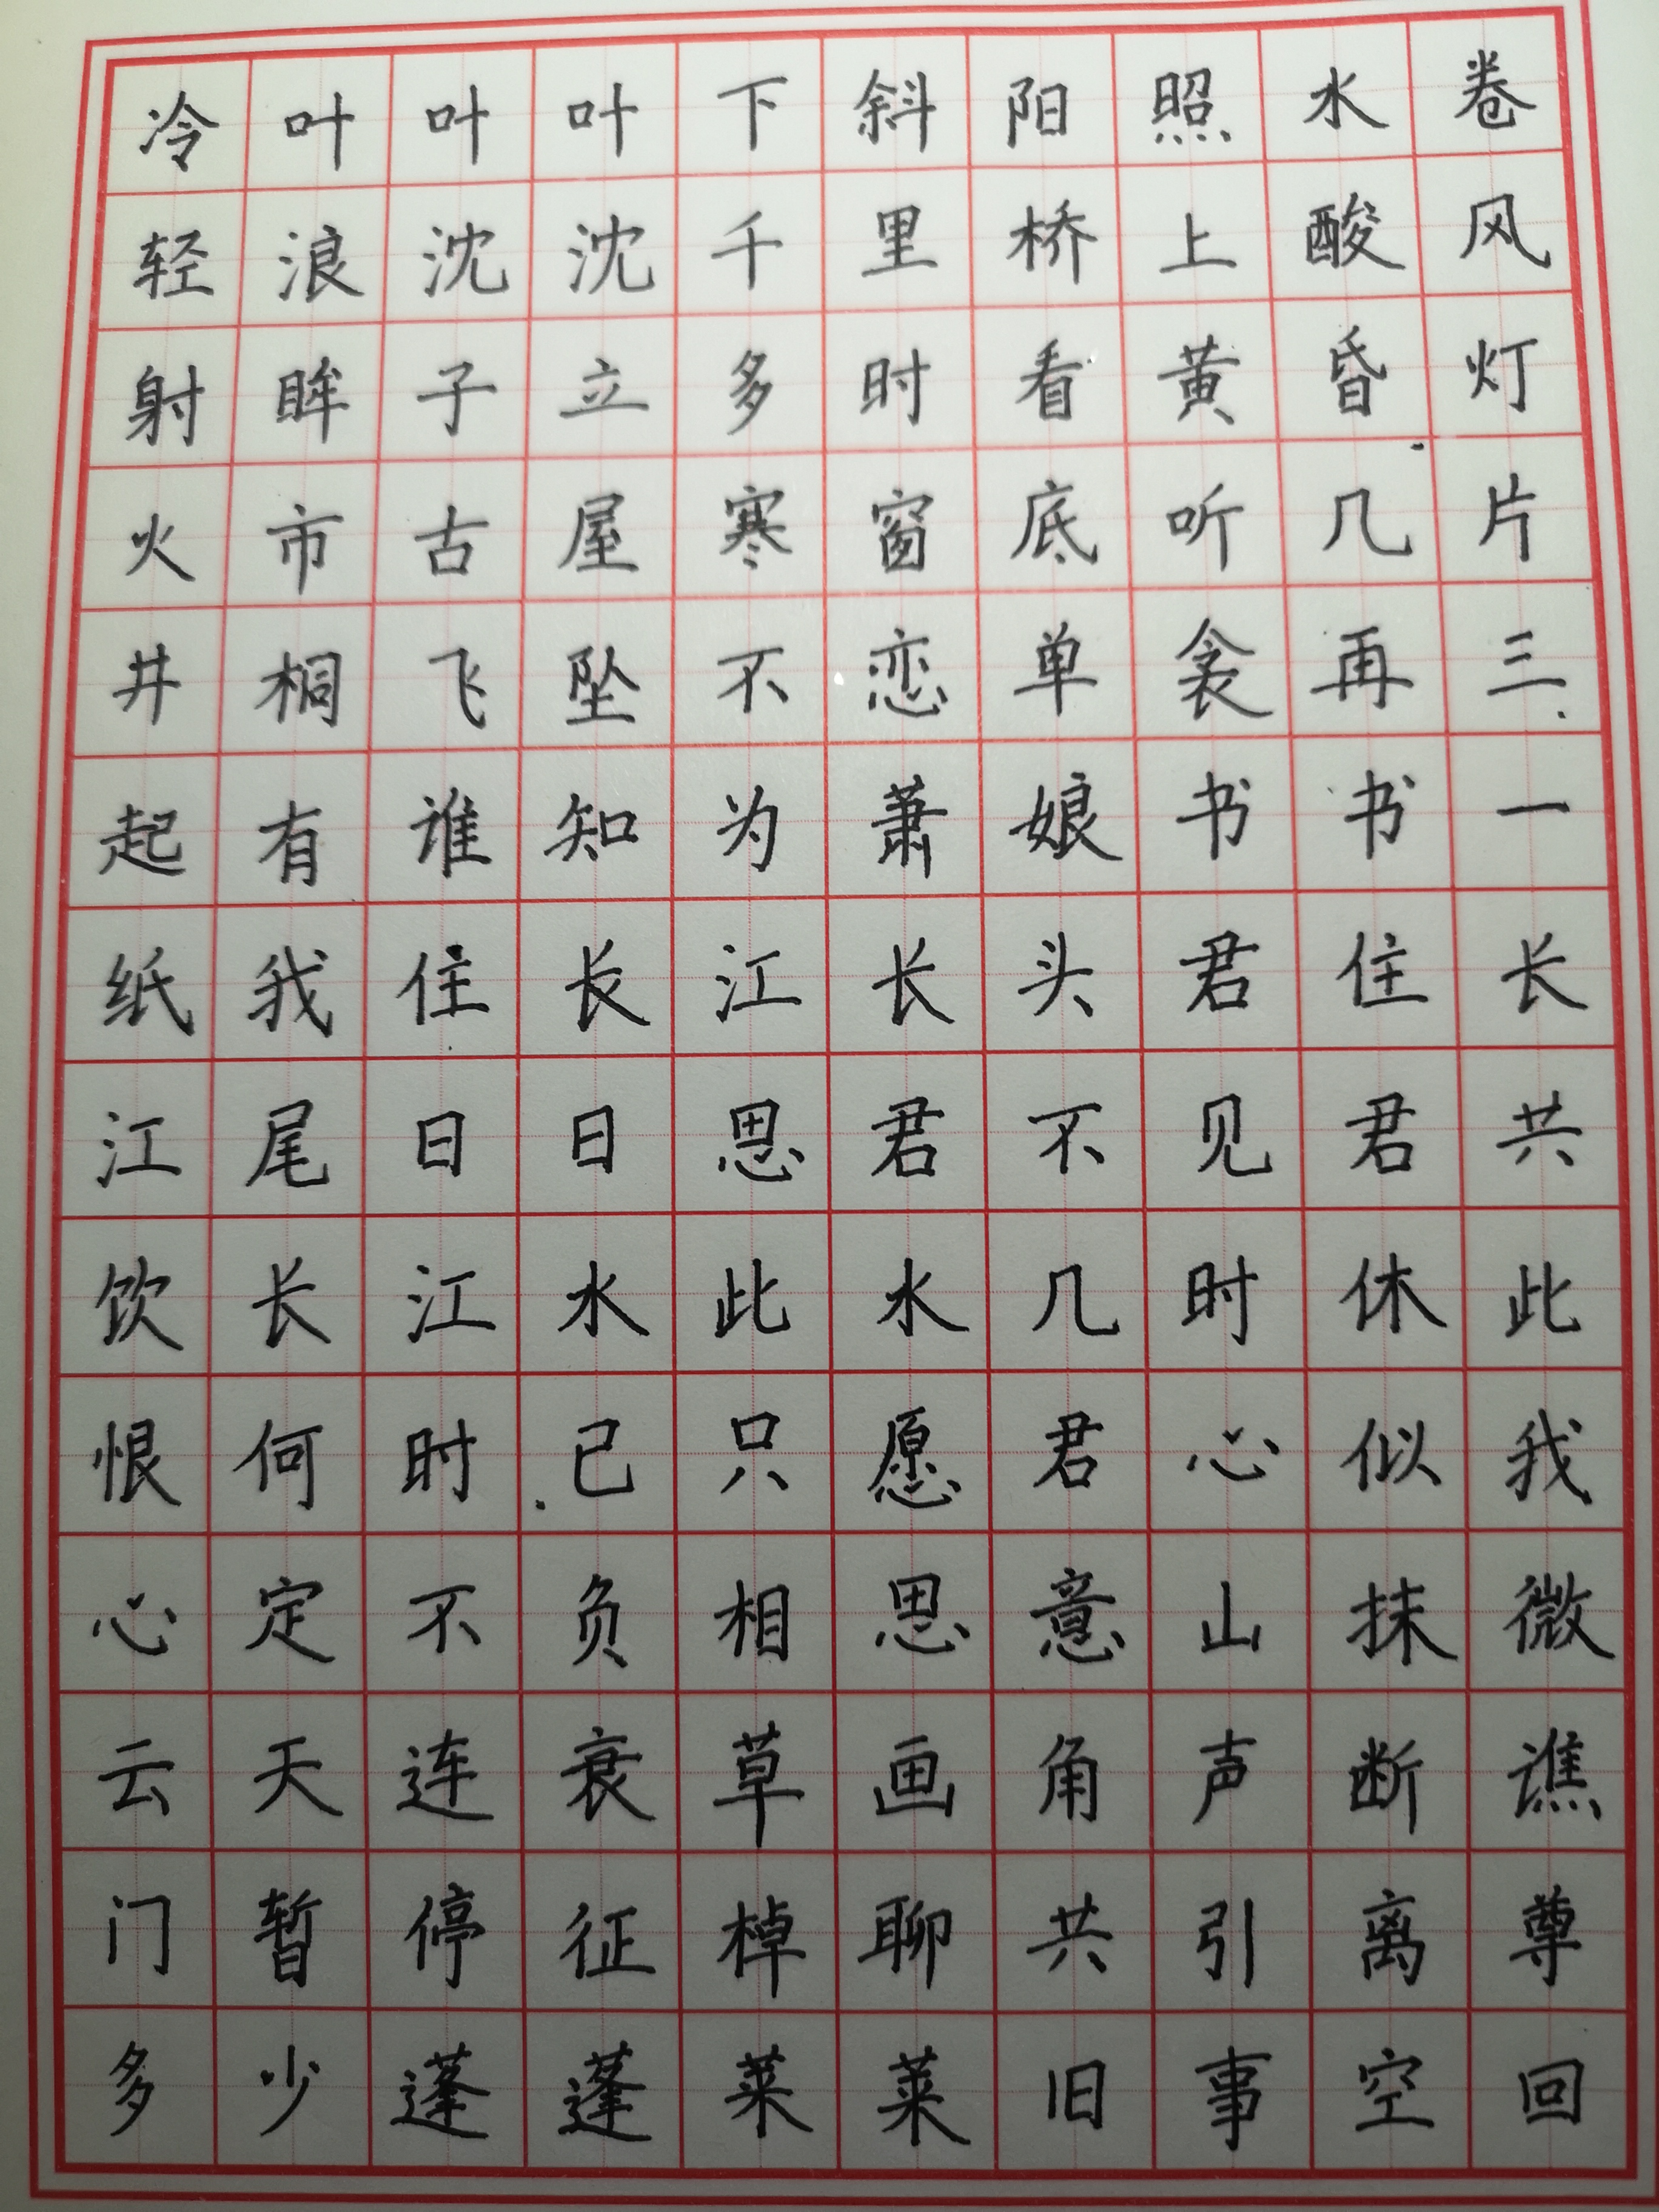 冷叶叶叶下斜阳照水卷
轻浪沈沈千里桥上酸风
射眸子立多时看黄昏灯
火市古屋寒窗底听几片
井桐飞坠不恋单衾再三
起有谁知为萧娘书书一
纸我住长江长头君住长
江尾日日思君不见君共
饮长江水此水几时休此
恨何时已只愿君心似我
心定不负相思意山抹微
云天连衰草画角声断谯
门暂停征棹聊共引离尊
多少蓬蓬菜菜旧事空回